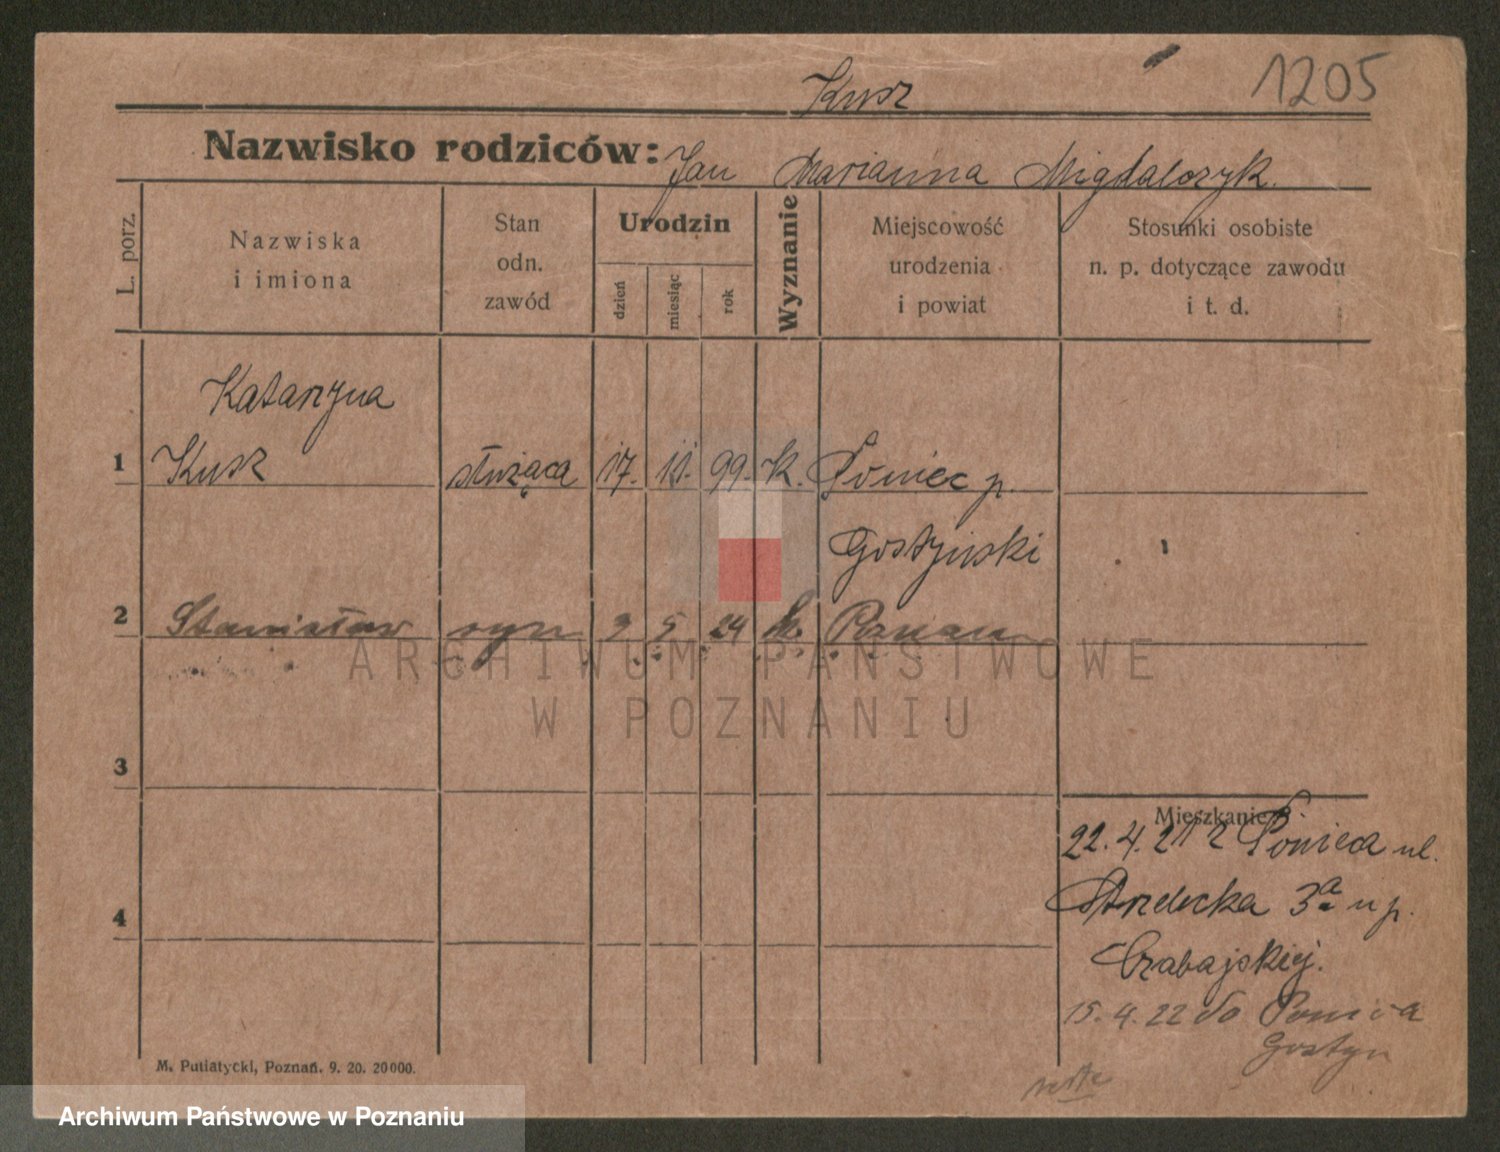 1205
Kusz
Nazwisko rodziców: Jan Marianna Migdalczyk.
L. porz.
Nazwiska
i imiona
Stan
odn.
zawód
Urodzin
dzień
miesiąc
rok
Wyznanie
Miejscowość
urodzenia
i powiat
Stosunki osobiste
n. p. dotyczące zawodu
i t. d.
Katarzyna
1 Kusz służąca 17. 11. 99. K. Poniec p.
Gostyński
2 Stanisław syn 9 5 24 k. Poznań
ARCHIWUM PAŃSTWOWE
W POZNANIU
3
Mieszkanie
22.4.21 z Ponieca ul.
Strzelecka 3a u p.
Czabajskiej.
4
15.4.22 do Ponieca
Gostyn
M. Putiatycki, Poznań. 9. 20. 20000.
Archiwum Państwowe w Poznaniu